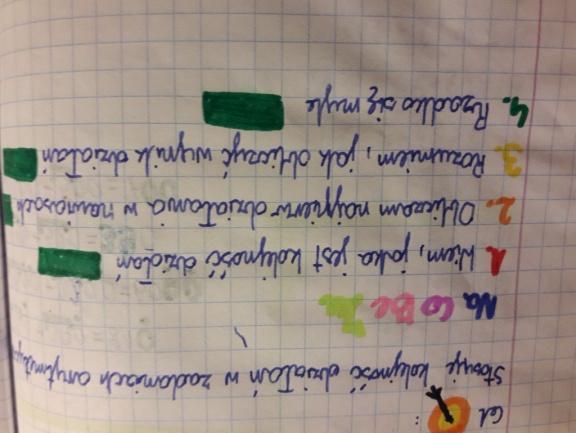 Cel :
Stosuję kolejność działań w zadaniach arytmetycz
Na Co Be Zu
1. Wiem, jaka jest kolejność działań
2. Obliczam najpierw działania w nawiasach
3. Rozumiem, jak obliczyć wynik działań
4. Rzadko się mylę